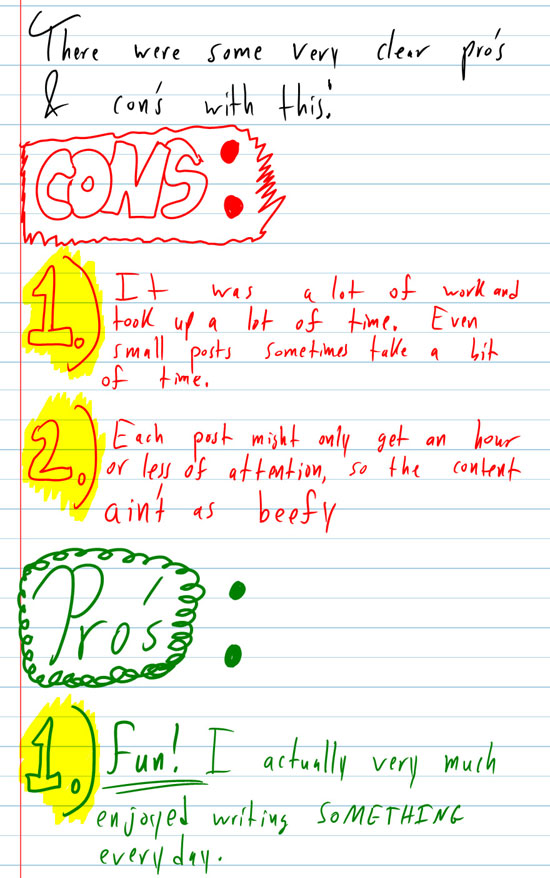 There were some very clear pro's
& con's with this:
CONS:
1.) It was a lot of work and
took up a lot of time. Even
small posts sometimes take a bit
of time.
2.) Each post might only get an hour
or less of attention, so the content
ain't as beefy
Pro's:
1.) Fun! I actually very much
enjoyed writing SOMETHING
everyday.